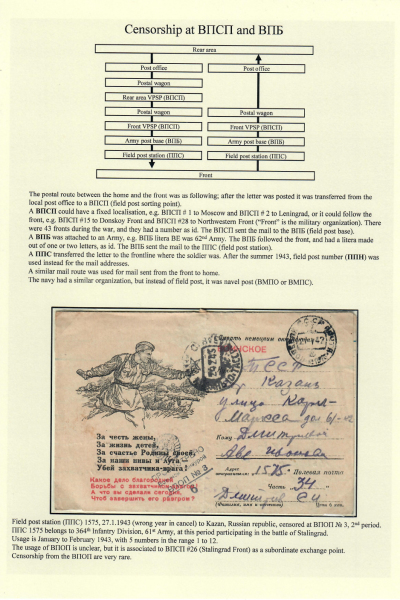 Censorship at ВПСП and ВПБ
Rear area
Post office
Post office
Postal wagon
Rear area VPSP (ВПСП)
Postal wagon
Postal wagon
Front VPSP (ВПСП)
Front VPSP (ВПСП)
Army post base (ВПБ)
Army post base (ВПБ)
Field post station (ППС)
Field post station (ППС)
Front
The postal route between the home and the front was as following; after the letter was posted it was transferred from the
local post office to a ВПСП (field post sorting point).
A ВПСП could have a fixed localisation, e.g. ВПСП # 1 to Moscow and ВПСП # 2 to Leningrad, or it could follow the
front, e.g. ВПСП #15 to Donskoy Front and ВПСП #28 to Northwestern Front ("Front" is the military organization). There
were 43 fronts during the war, and they had a number as id. The ВПСП sent the mail to the ВПБ (field post base).
A ВПБ was attached to an Army, e.g. ВПБ litera BE was 62nd Army. The ВПБ followed the front, and had a litera made
out of one or two letters, as id. The ВПБ sent the mail to the ППС (field post station).
A ППС transferred the letter to the frontline where the soldier was. After the summer 1943, field post number (ППН) was
used instead for the mail addresses.
A similar mail route was used for mail sent from the front to home.
The navy had a similar organization, but instead of field post, it was navel post (ВМПО or ВМПС).
Смерть немецким
ВОИНСКОЕ
ТССР
Казань
улица Карла-
Маркса дом
Кому
За честь жены,
За жизнь детей,
За счастье Родины своей,
За наши нивы и луга –
Убей захватчика-врага!
Какое дело благородней
Борьбы с захватчиком-врагом!
А что вы сделали сегодня,
Чтоб завершить его разгром?
Адрес
1575 Полевая почта
Часть
Цена 6 коп.
Field post station (ППС) 1575, 27.1.1943 (wrong year in cancel) to Kazan, Russian republic, censored at ВПОП № 3, 2nd period.
ППС 1575 belongs to 364th Infantry Division, 61st Army, at this period participating in the battle of Stalingrad.
Usage is January to February 1943, with 5 numbers in the range 1 to 12.
The usage of ВПОП is unclear, but it is associated to ВПСП #26 (Stalingrad Front) as a subordinate exchange point.
Censorship from the ВПОП are very rare.